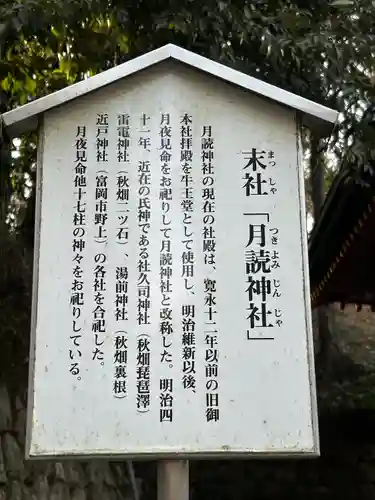 末社「月読神社」
まっしゃ
つきよみじんじゃ
月読神社の現在の社殿は、寛永十二年以前の旧御
本社拝殿を牛王堂として使用し、明治維新以後、
月夜見命をお祀りして月読神社と改称した。明治四
十一年、近在の氏神である社久司神社（秋畑琵琶澤）
雷電神社（秋畑二ツ石）、湯前神社（秋畑裏根）
近戸神社（富岡市野上）の各社を合祀した。
月夜見命他十七柱の神々をお祀りしている。